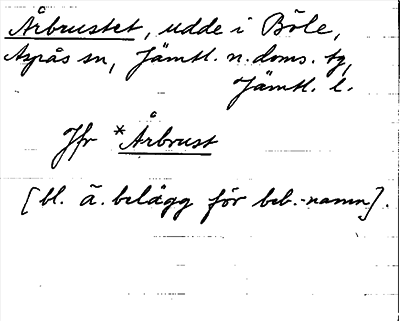 Årbrustet, udde i Böle,
Aspås sn, Jämtl. n. doms. tg,
Jämtl. l.
Jfr *Årbrust
[bl. ä. belägg för beb.-namn].